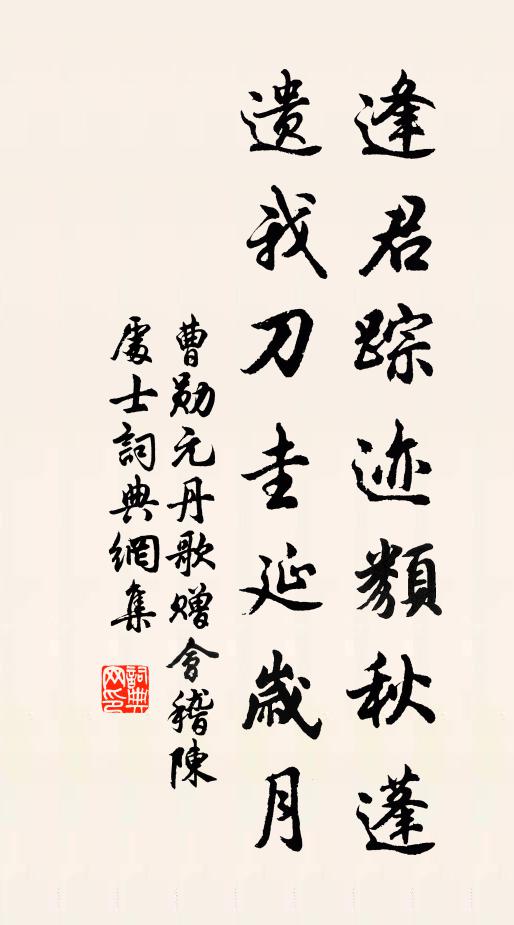 逢君踪迹類秋蓬
遺我刀圭延歲月
曹勛元丹歌贈會稽陳
處士詞典網集
詞典
网印